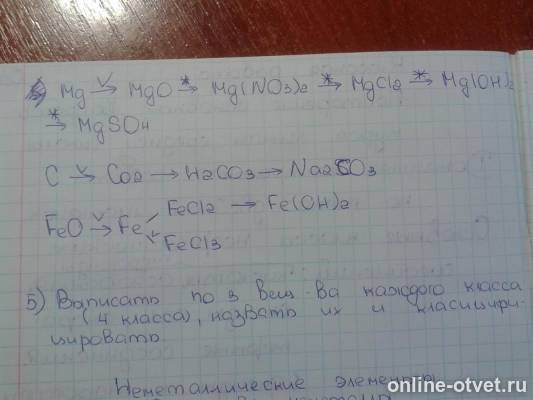 Mg → MgO →* Mg(NO3)2 →* MgCl2 →* Mg(OH)2
→* MgSO4
C → CO2 → H2CO3 → Na2CO3
FeCl2 → Fe(OH)2
FeO → Fe
FeCl3
5) Записать по 3 вещ-ва каждого класса
(4 класса), назвать их и класицири-
цировать.
Неметаллические элементы
online-otvet.ru